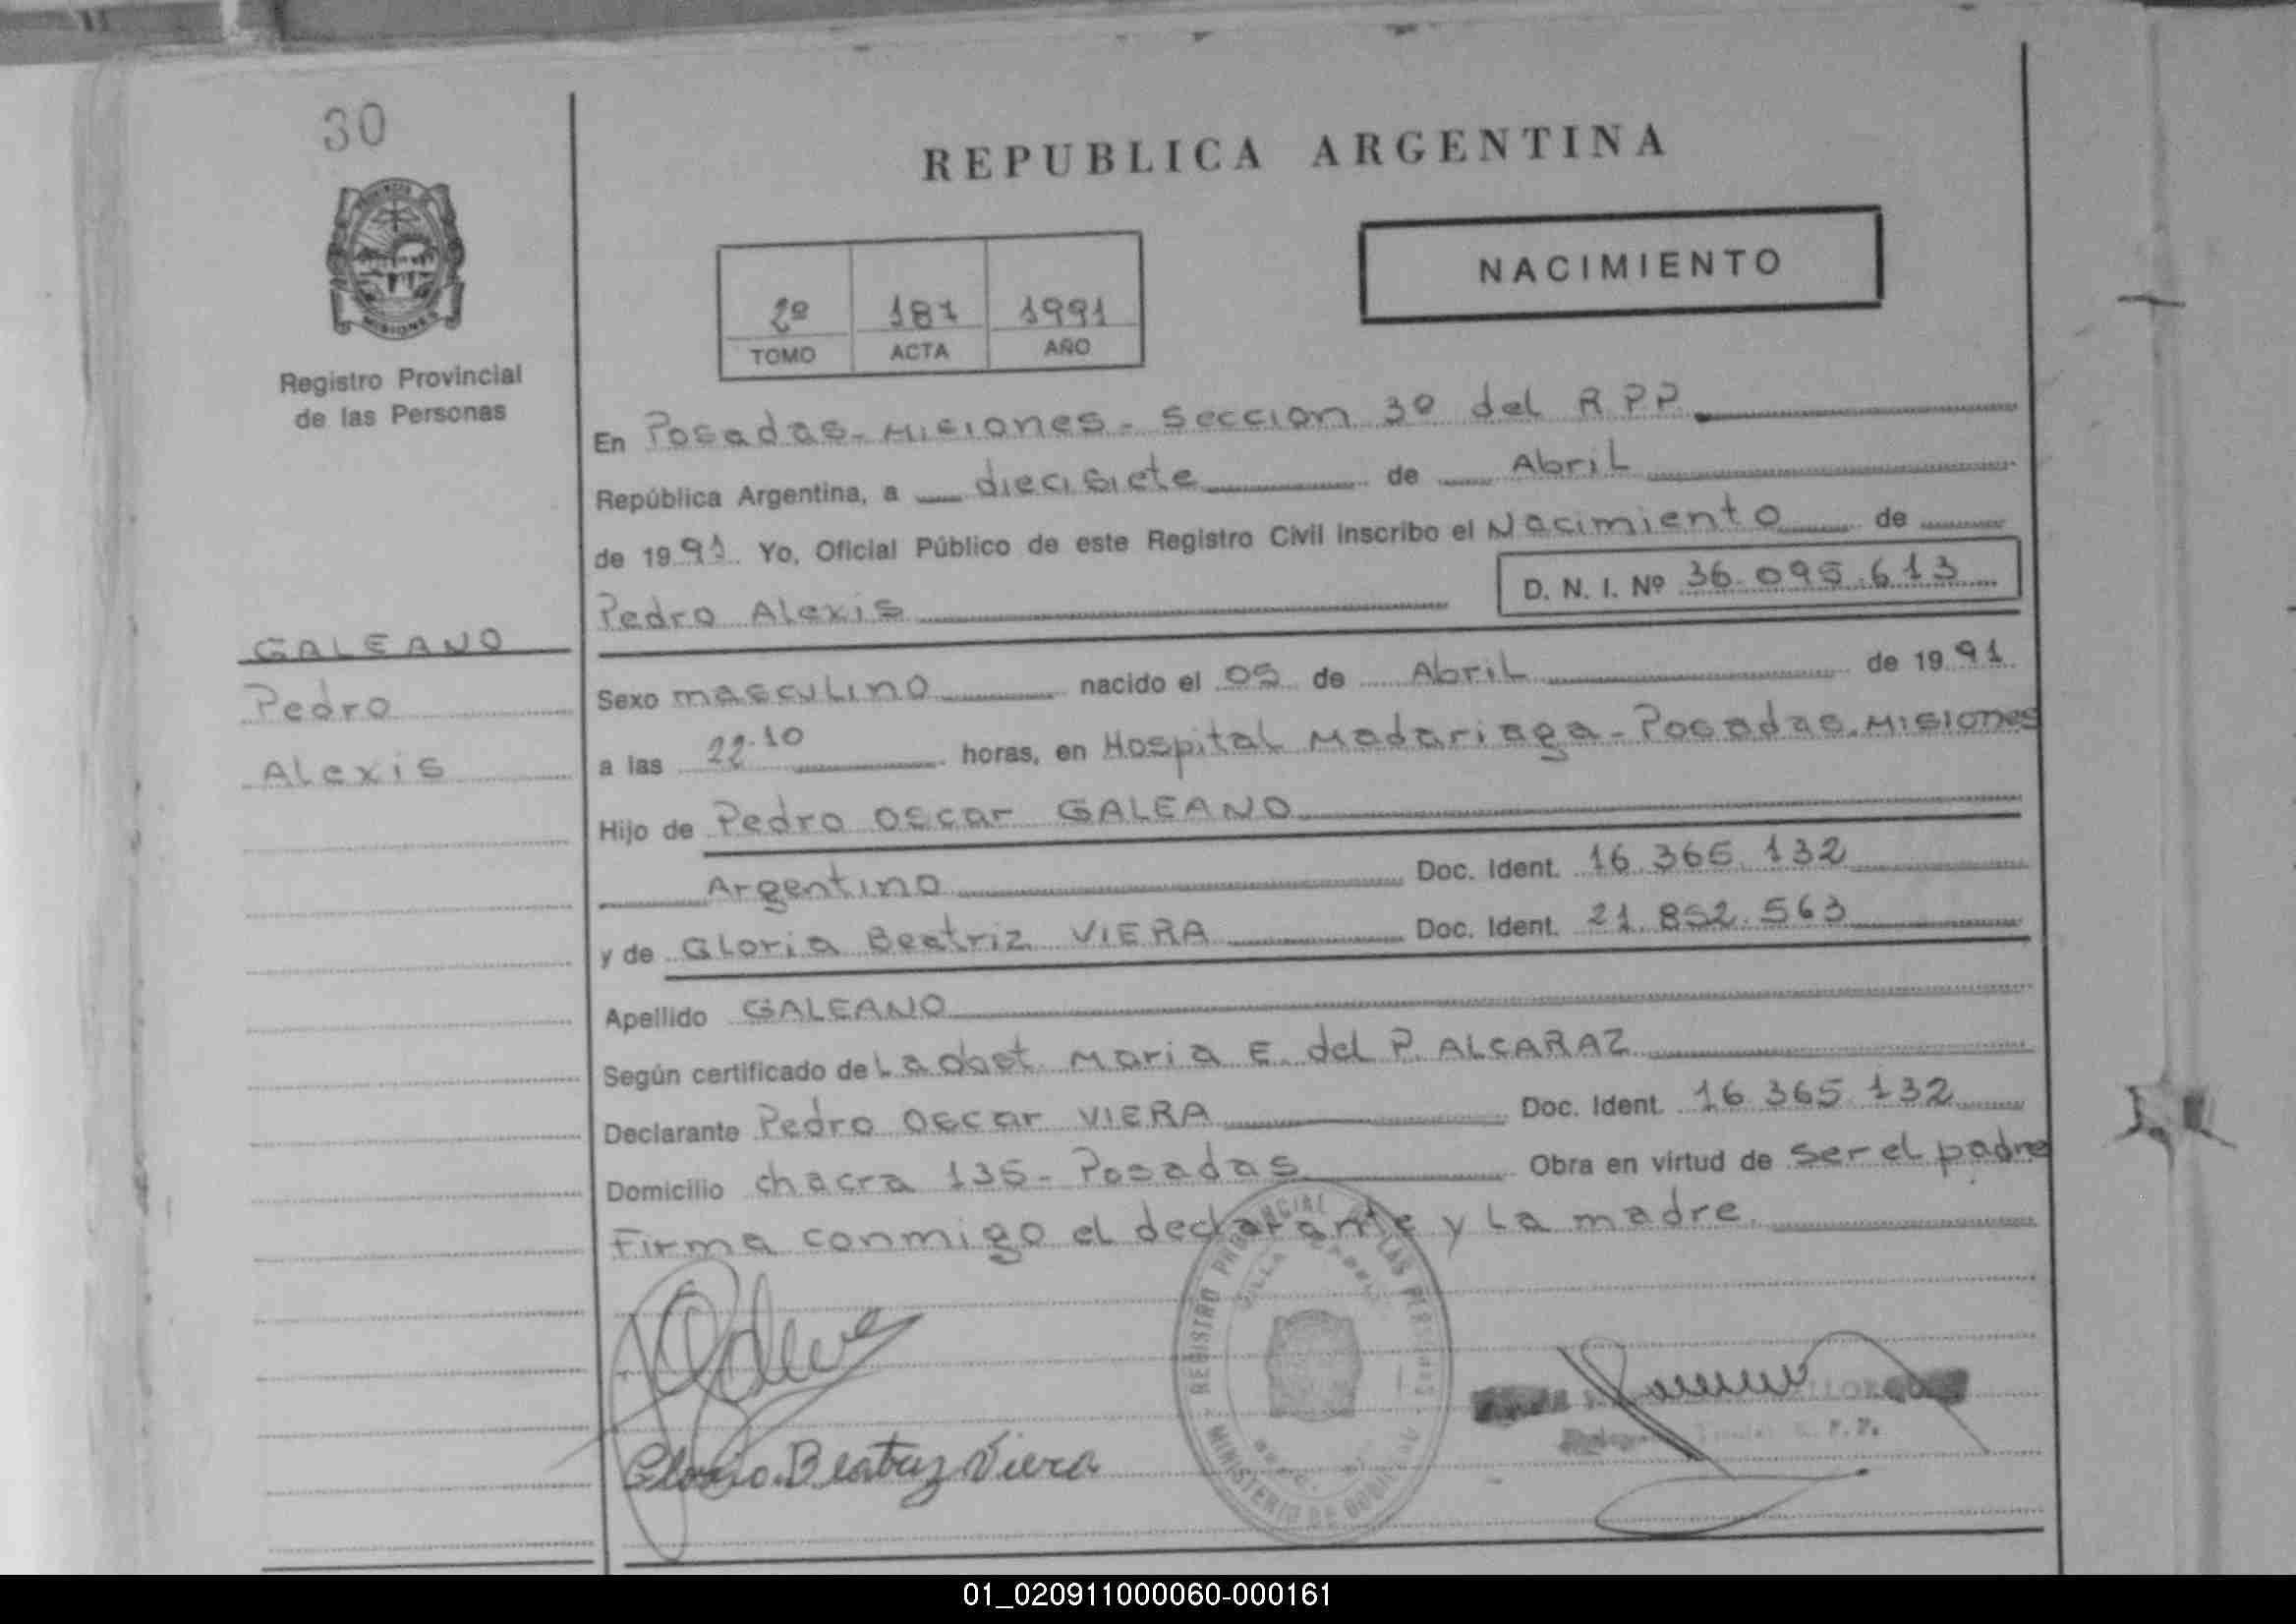 30
REPUBLICA ARGENTINA
NACIMIENTO
2º 187 1991
TOMO ACTA AÑO
MISIONES
Registro Provincial
de las Personas
En Posadas-Misiones- Seccion 3º del R P P
República Argentina, a diecisiete de Abril
de 1991. Yo, Oficial Público de este Registro Civil inscribo el Nacimiento de
D. N. I. Nº 36.095.613
Pedro Alexis
GALEANO
Pedro
Alexis
Sexo masculino nacido el 05 de Abril de 1991
a las 22.10 horas, en Hospital Madariaga-Posadas.Misiones
Hijo de Pedro Oscar GALEANO
Argentino Doc. Ident. 16.365.132
y de Gloria Beatriz VIERA Doc. Ident. 21.852.563
Apellido GALEANO
Según certificado de La obst. Maria E. del P. ALCARAZ
Declarante Pedro Oscar VIERA Doc. Ident. 16 365.132
Domicilio chacra 135- Posadas Obra en virtud de ser el padre
Firma conmigo el declarante y La madre.
REGISTRO PROVINCIAL DE LAS PERSONAS
MINISTERIO DE GOBIERNO
Gloria Beatriz Viera
01_020911000060-000161